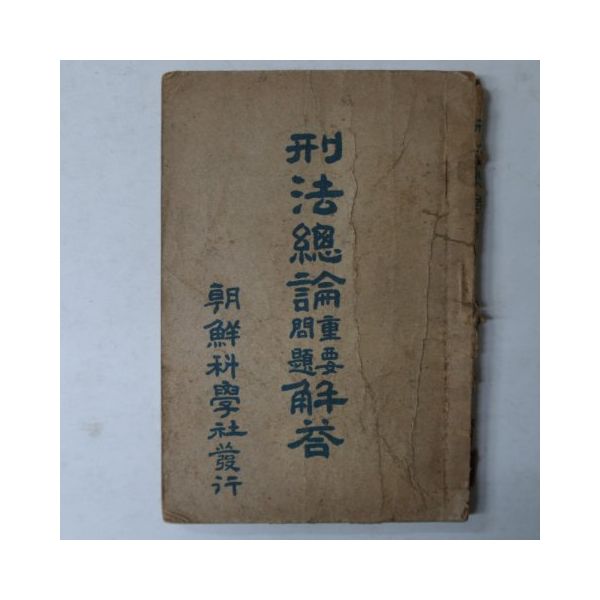 刑法總論重要問題解答
朝鮮科學社發行